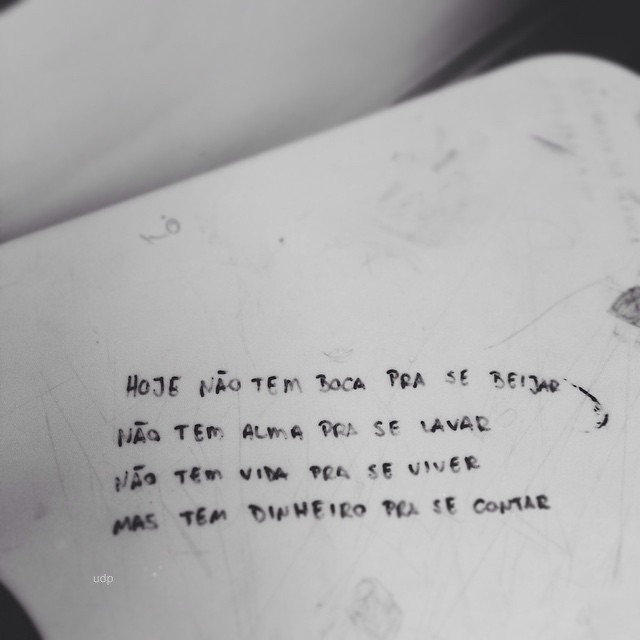 HOJE NÃO TEM BOCA PRA SE BEIJAR
NÃO TEM ALMA PRA SE LAVAR
NÃO TEM VIDA PRA SE VIVER
MAS TEM DINHEIRO PRA SE CONTAR
udp